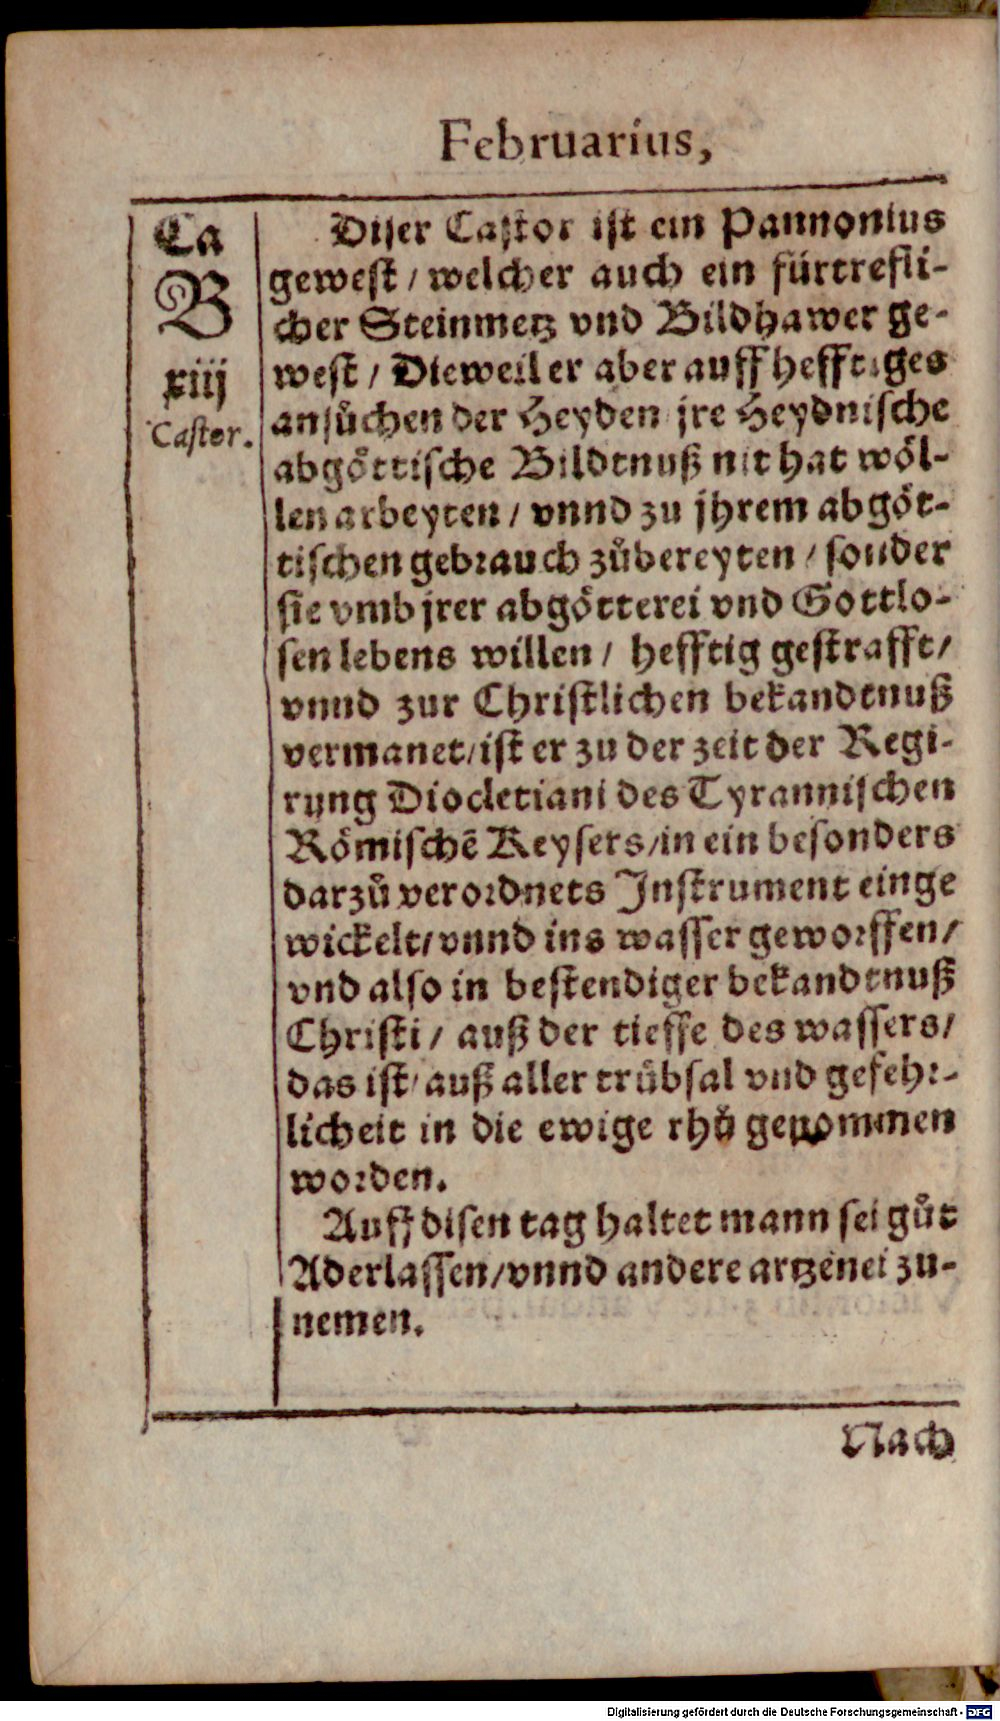 Februarius,
Ca
B
xiij
Castor.
Diser Castor ist ein Pannonius
gewest / welcher auch ein fürtrefli-
cher Steinmetz vnd Bildhawer ge-
west / Dieweil er aber auff hefftiges
ansůchen der Heyden jre Heydnische
abgöttische Bildtnuß nit hat wöl-
len arbeyten / vnnd zu jhrem abgöt-
tischen gebrauch zůbereyten / sonder
sie vmb jrer abgötterei vnd Gottlo-
sen lebens willen / hefftig gestrafft/
vnnd zur Christlichen bekandtnuß
vermanet/ist er zu der zeit der Regi-
rung Diocletiani des Tyrannischen
Römischē Keysers/in ein besonders
darzů verordnets Instrument einge
wickelt/vnnd ins wasser geworffen/
vnd also in bestendiger bekandtnuß
Christi / auß der tieffe des wassers/
das ist/auß aller trübsal vnd gefehr-
licheit in die ewige rhů genommen
worden.
Auff disen tag haltet mann sei gůt
Aderlassen/vnnd andere artzenei zu-
nemen.
Nach
Digitalisierung gefördert durch die Deutsche Forschungsgemeinschaft - DFG